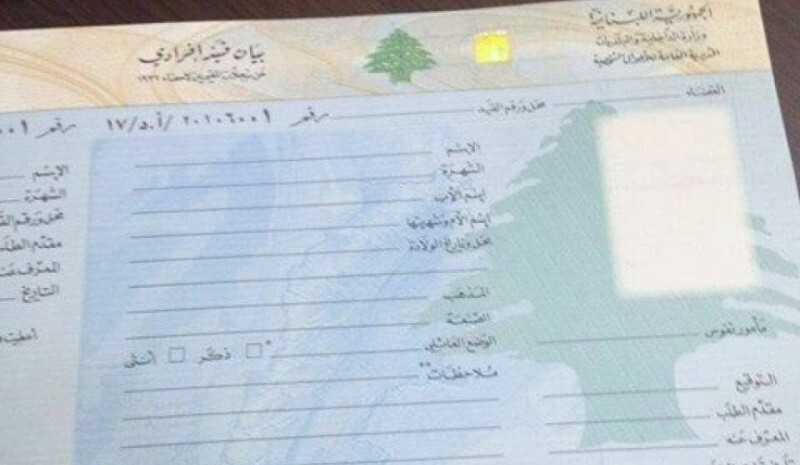 الجمهورية اللبنانية
وزارة الداخلية والبلديات
المديرية العامة للأحوال الشخصية
بيان قيد إفرادي
عن سجلات المقيمين لإحصاء ١٩٣٢
القضاء
محل ورقم القيد
رقم ٢٠١٠٦٠٠١ /أ.د/١٧
الإسم
الشهرة
إسم الأب
إسم الأم وشهرتها
محل وتاريخ الولادة
المذهب
الصنعة
الوضع العائلي
* ذكر أنثى
ملاحظات**
مأمور نفوس
التوقيع
مقدّم الطلب
المعرّف عنه
رقم ٠٠١
الإسم
الشهرة
محل ورقم
مقدّم الطلب
المعرّف عنه
التاريخ
أعطيت